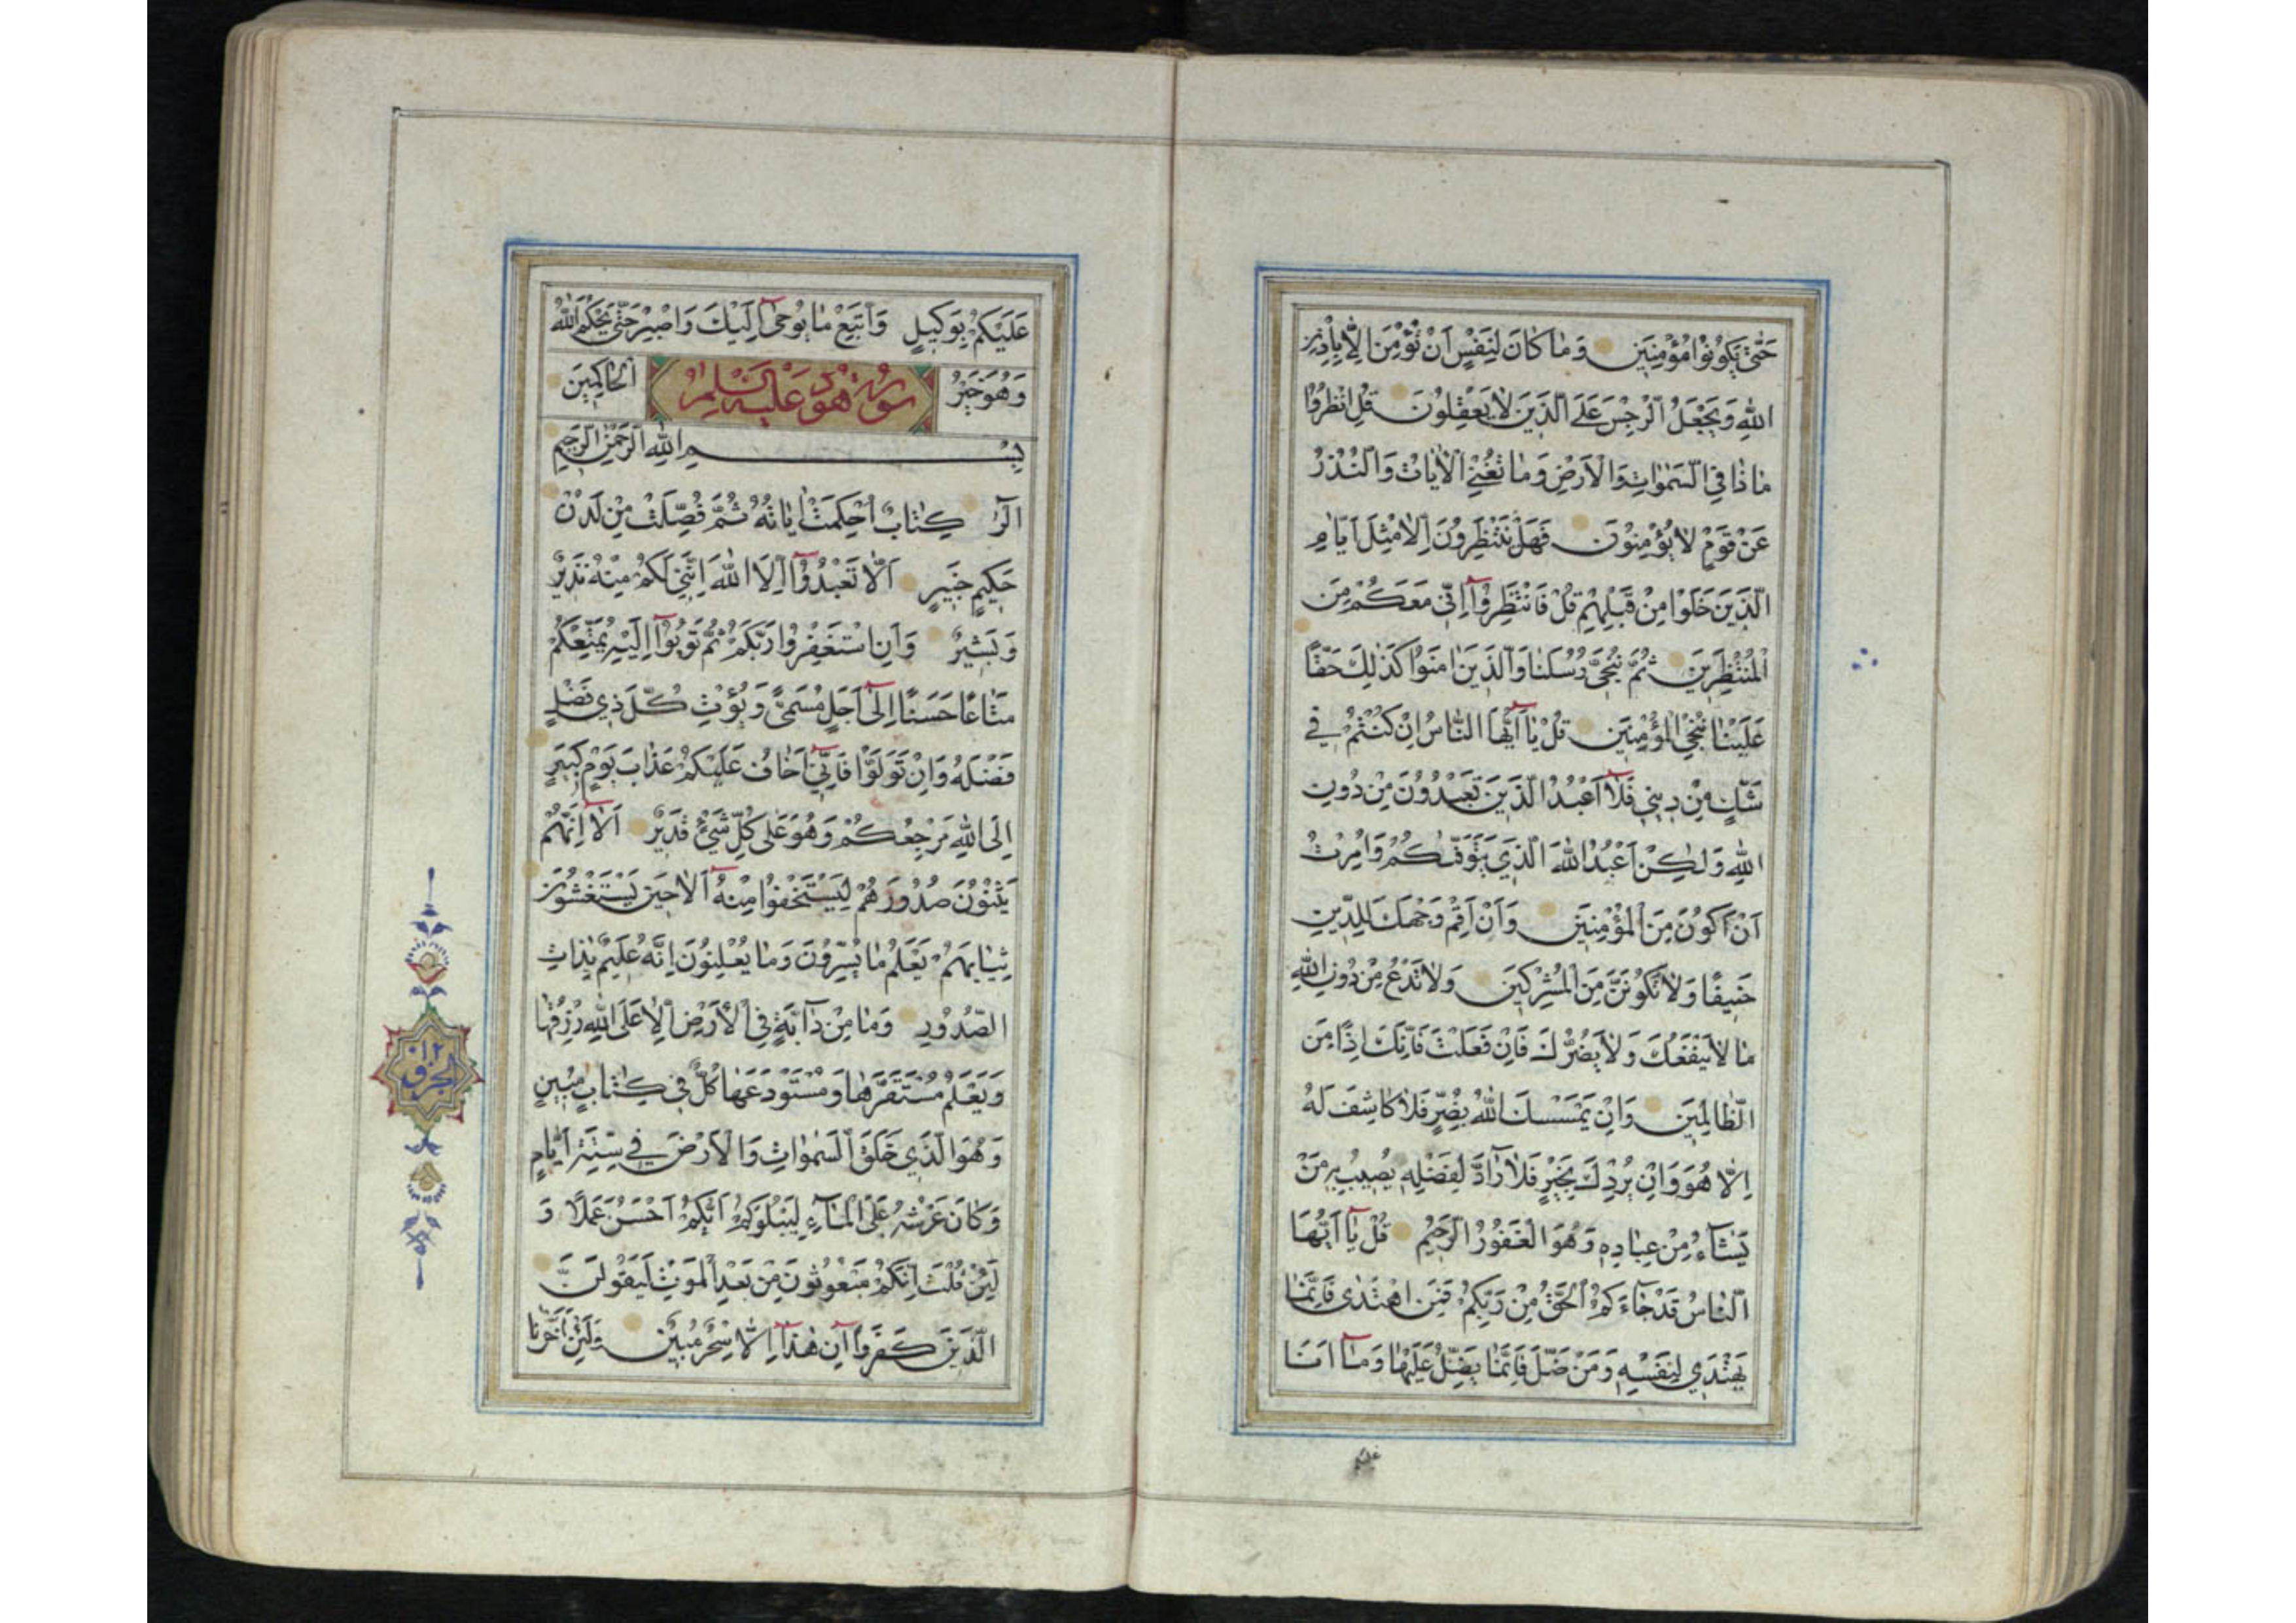 حَتّىٰ يَكُونُوا مُؤْمِنِينَ وَمٰا كٰانَ لِنَفْسٍ اَنْ تُؤْمِنَ اِلّٰا بِاِذْنِ
اللّٰهِ وَيَجْعَلُ الرِّجْسَ عَلَى الَّذِينَ لٰا يَعْقِلُونَ قُلِ انْظُرُوا
مٰا ذٰا فِي السَّمٰوٰاتِ وَالْاَرْضِ وَمٰا تُغْنِي الْاٰيٰاتُ وَالنُّذُرُ
عَنْ قَوْمٍ لٰا يُؤْمِنُونَ فَهَلْ يَنْتَظِرُونَ اِلّٰا مِثْلَ اَيّٰامِ
الَّذِينَ خَلَوْا مِنْ قَبْلِهِمْ قُلْ فَانْتَظِرُوآ اِنّي مَعَكُمْ مِنَ
الْمُنْتَظِرِينَ ثُمَّ نُنَجّي رُسُلَنٰا وَالَّذِينَ اٰمَنُوا كَذٰلِكَ حَقًّا
عَلَيْنٰا نُنْجِ الْمُؤْمِنِينَ قُلْ يٰآ اَيُّهَا النّٰاسُ اِنْ كُنْتُمْ فِي
شَكٍّ مِنْ دِينِي فَلٰآ اَعْبُدُ الَّذِينَ تَعْبُدُونَ مِنْ دُونِ
اللّٰهِ وَلٰكِنْ اَعْبُدُ اللّٰهَ الَّذِي يَتَوَفّٰيكُمْ وَاُمِرْتُ
اَنْ اَكُونَ مِنَ الْمُؤْمِنِينَ وَاَنْ اَقِمْ وَجْهَكَ لِلدِّينِ
حَنِيفًا وَلٰا تَكُونَنَّ مِنَ الْمُشْرِكِينَ وَلٰا تَدْعُ مِنْ دُونِ اللّٰهِ
مٰا لٰا يَنْفَعُكَ وَلٰا يَضُرُّكَ فَاِنْ فَعَلْتَ فَاِنَّكَ اِذًا مِنَ
الظّٰالِمِينَ وَاِنْ يَمْسَسْكَ اللّٰهُ بِضُرٍّ فَلٰا كٰاشِفَ لَهُ
اِلّٰا هُوَ وَاِنْ يُرِدْكَ بِخَيْرٍ فَلٰا رٰآدَّ لِفَضْلِهِ يُصِيبُ بِهِ مَنْ
يَشٰآءُ مِنْ عِبٰادِهِ وَهُوَ الْغَفُورُ الرَّحِيمُ قُلْ يٰآ اَيُّهَا
النّٰاسُ قَدْ جٰآءَكُمُ الْحَقُّ مِنْ رَبِّكُمْ فَمَنِ اهْتَدٰى فَاِنَّمٰا
يَهْتَدِي لِنَفْسِهِ وَمَنْ ضَلَّ فَاِنَّمٰا يَضِلُّ عَلَيْهٰا وَمٰآ اَنَا
عَلَيْكُمْ بِوَكِيلٍ وَاتَّبِعْ مٰا يُوحٰىٓ اِلَيْكَ وَاصْبِرْ حَتّٰى يَحْكُمَ اللّٰهُ
وَهُوَ خَيْرُ الْحٰاكِمِينَ
سورة هود عليه السلم
بِسْمِ اللّٰهِ الرَّحْمٰنِ الرَّحِيمِ
الٓرٰ كِتٰابٌ اُحْكِمَتْ اٰيٰاتُهُ ثُمَّ فُصِّلَتْ مِنْ لَدُنْ
حَكِيمٍ خَبِيرٍ اَلّٰا تَعْبُدُوآ اِلَّا اللّٰهَ اِنَّنِي لَكُمْ مِنْهُ نَذِيرٌ
وَبَشِيرٌ وَاَنِ اسْتَغْفِرُوا رَبَّكُمْ ثُمَّ تُوبُوآ اِلَيْهِ يُمَتِّعْكُمْ
مَتٰاعًا حَسَنًا اِلٰىٓ اَجَلٍ مُسَمًّى وَيُؤْتِ كُلَّ ذِي فَضْلٍ
فَضْلَهُ وَاِنْ تَوَلَّوْا فَاِنِّيٓ اَخٰافُ عَلَيْكُمْ عَذٰابَ يَوْمٍ كَبِيرٍ
اِلَى اللّٰهِ مَرْجِعُكُمْ وَهُوَ عَلٰى كُلِّ شَيْءٍ قَدِيرٌ اَلٰآ اِنَّهُمْ
يَثْنُونَ صُدُورَهُمْ لِيَسْتَخْفُوا مِنْهُ اَلٰا حِينَ يَسْتَغْشُونَ
ثِيٰابَهُمْ يَعْلَمُ مٰا يُسِرُّونَ وَمٰا يُعْلِنُونَ اِنَّهُ عَلِيمٌ بِذٰاتِ
الصُّدُورِ وَمٰا مِنْ دٰآبَّةٍ فِي الْاَرْضِ اِلّٰا عَلَى اللّٰهِ رِزْقُهٰا
وَيَعْلَمُ مُسْتَقَرَّهٰا وَمُسْتَوْدَعَهٰا كُلٌّ فِي كِتٰابٍ مُبِينٍ
وَهُوَ الَّذِي خَلَقَ السَّمٰوٰاتِ وَالْاَرْضَ فِي سِتَّةِ اَيّٰامٍ
وَكٰانَ عَرْشُهُ عَلَى الْمٰآءِ لِيَبْلُوَكُمْ اَيُّكُمْ اَحْسَنُ عَمَلًا وَ
لَئِنْ قُلْتَ اِنَّكُمْ مَبْعُوثُونَ مِنْ بَعْدِ الْمَوْتِ لَيَقُولَنَّ
الَّذِينَ كَفَرُوآ اِنْ هٰذٰآ اِلّٰا سِحْرٌ مُبِينٌ وَلَئِنْ اَخَّرْنٰا
الجزو ١٢